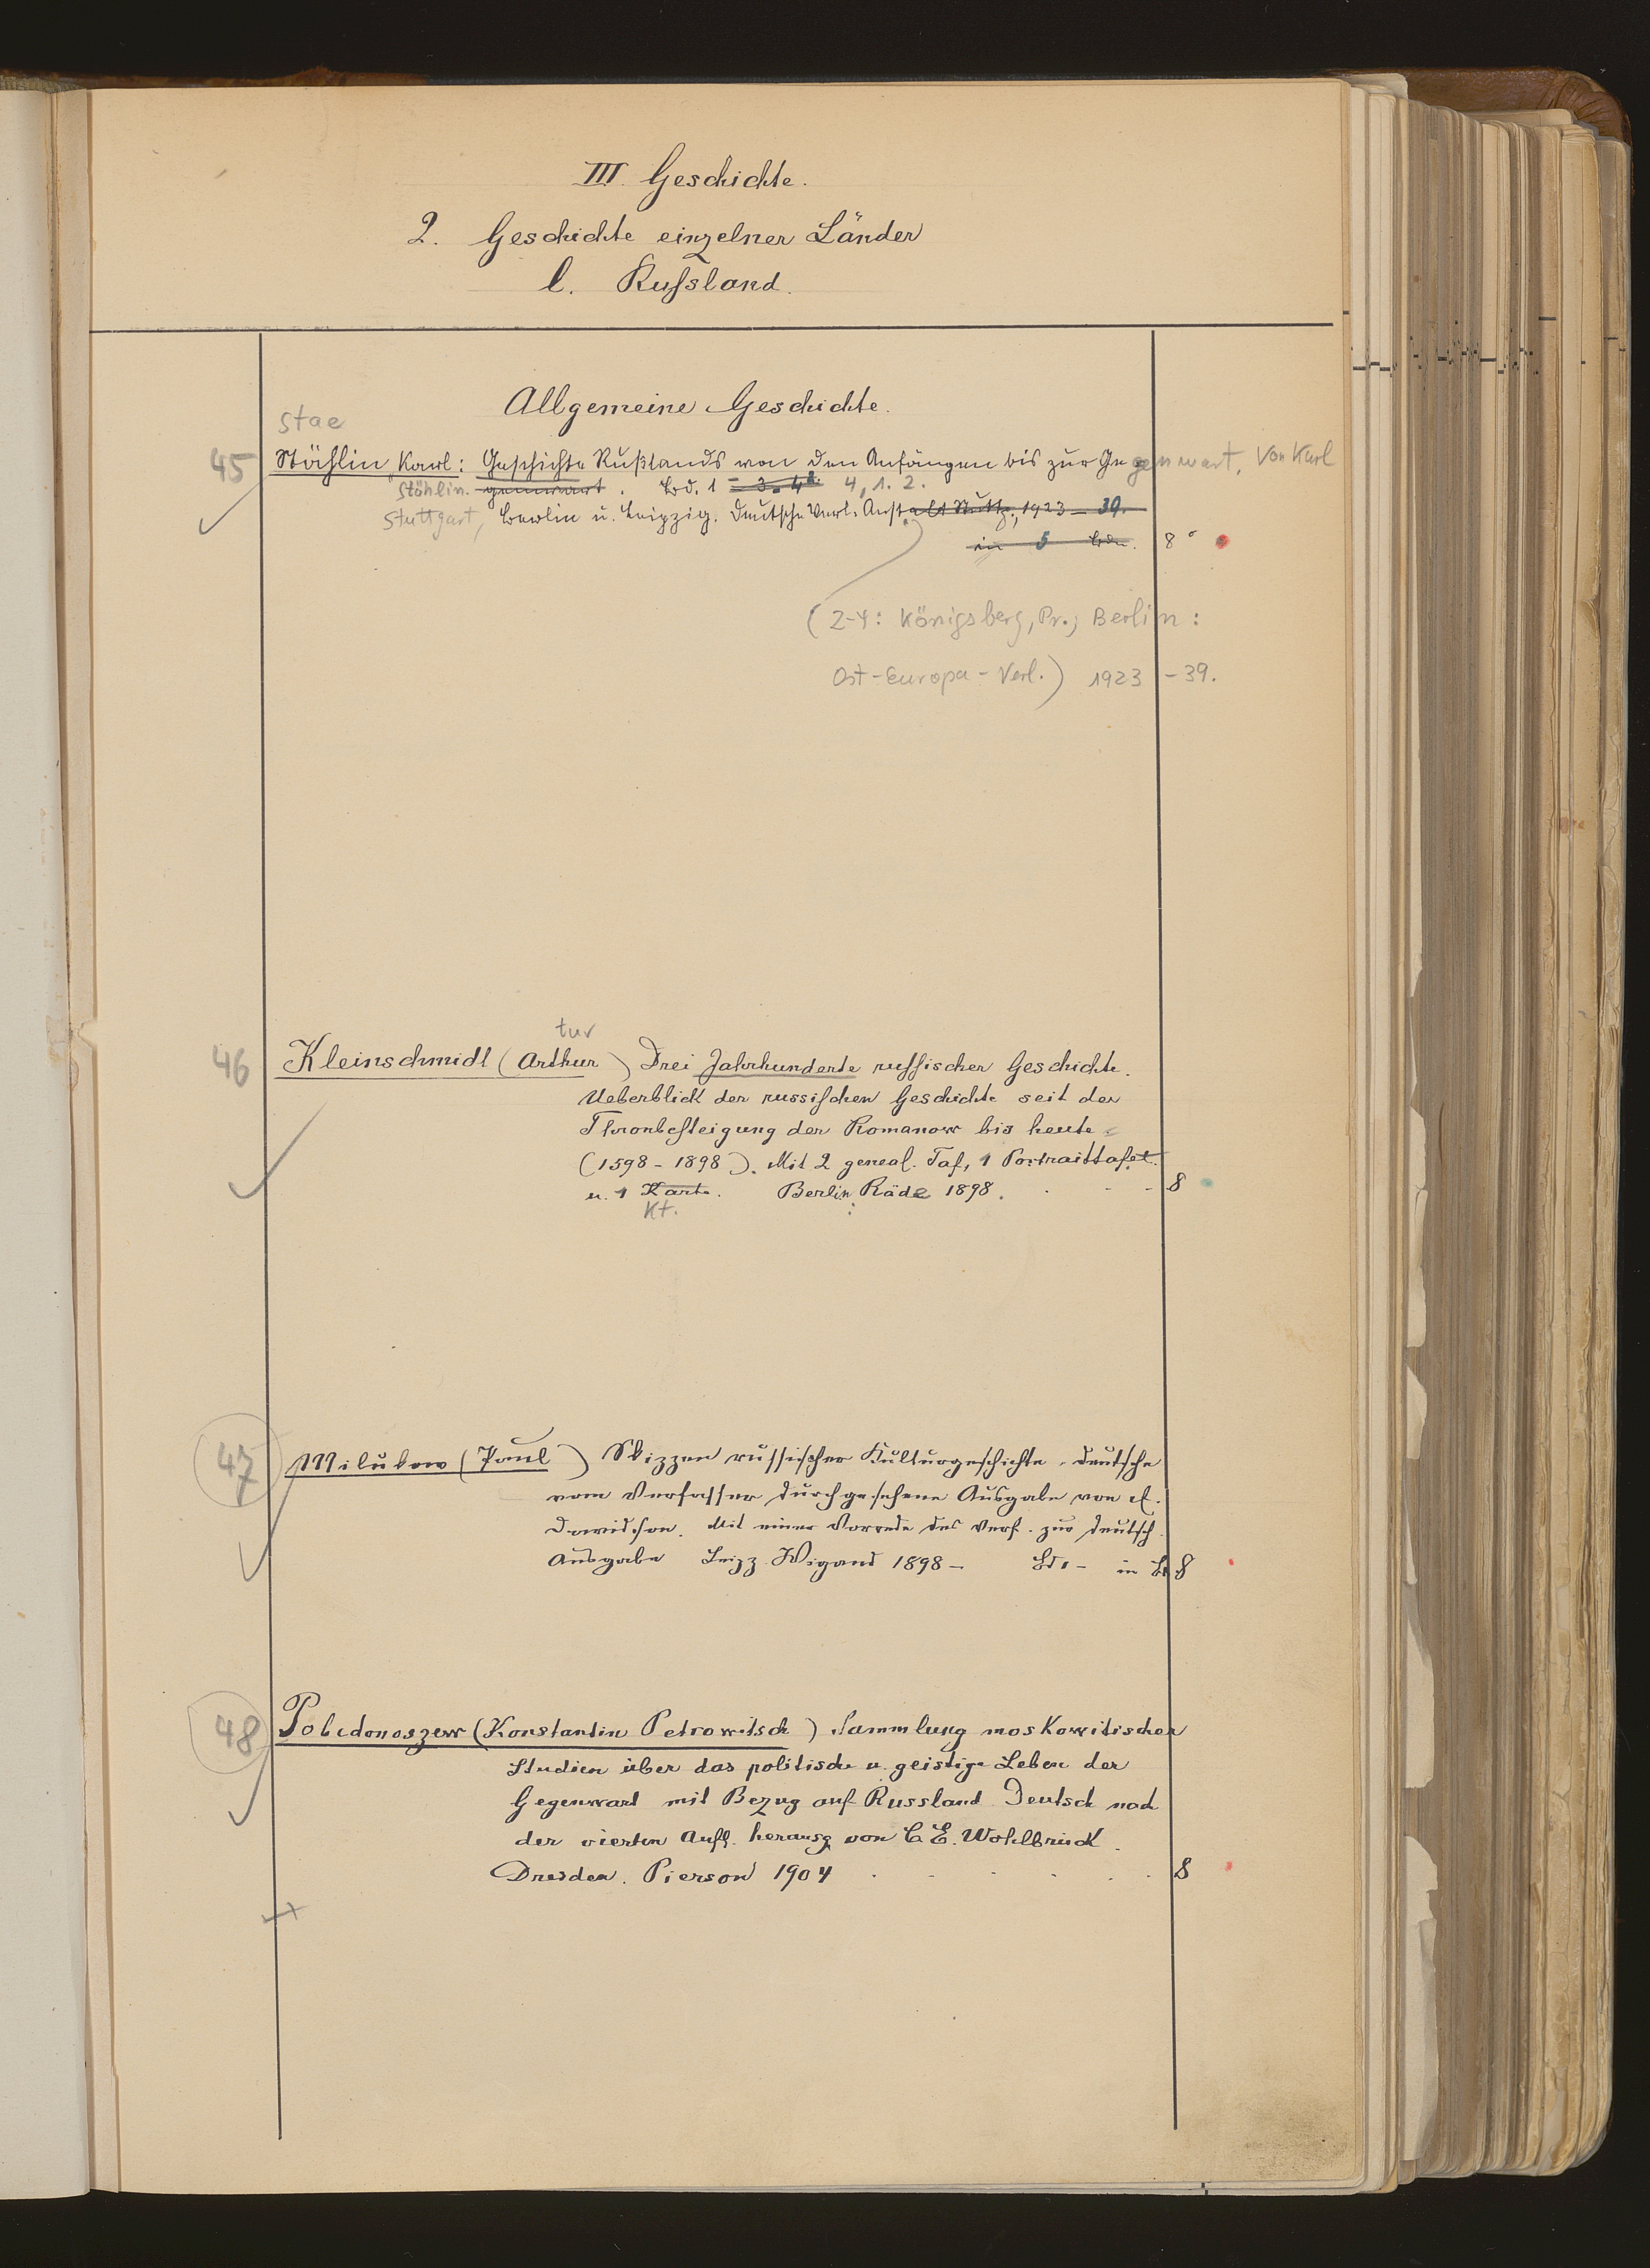 III. Geschichte.
2. Geschichte einzelner Länder
l. Russland.
Allgemeine Geschichte.
stae
45 Stählin, Karl: Geschichte Rußlands von den Anfängen bis zur Gegenwart. Von Karl
Stählin. genwart. Bd. 1 - 3. 4 4,1.2.
Stuttgart, Berlin u. Leipzig. Deutsche Verl. Anstalt Stuttg., 1923 - 39.
in 5 Bdn. 8°
(2-4: Königsberg, Pr.; Berlin:
Ost-Europa-Verl.) 1923 - 39.
tur
46 Kleinschmidt (Arthur) Drei Jahrhunderte russischer Geschichte.
Ueberblick der russischen Geschichte seit der
Thronbesteigung der Romanow bis heute
(1598 - 1898). Mit 2 geneal. Taf, 1 Portraittafel
u. 1 Karte. Berlin: Räde 1898. 8
Kt.
47 Milukow (Paul) Skizzen russischer Kulturgeschichte. Deutsche
vom Verfasser durchgesehene Ausgabe von E.
Dawidson. Mit einer Vorrede des Verf. zur deutsch.
Ausgabe Leipz. Wigand 1898 - Bd 1 - in 8
48 Pobedonoszew (Konstantin Petrowitsch) Sammlung moskowitischer
Studien über das politische u. geistige Leben der
Gegenwart mit Bezug auf Russland Deutsch nach
der vierten Aufl. herausg von C E. Wohlbrück.
Dresden. Pierson 1904 8